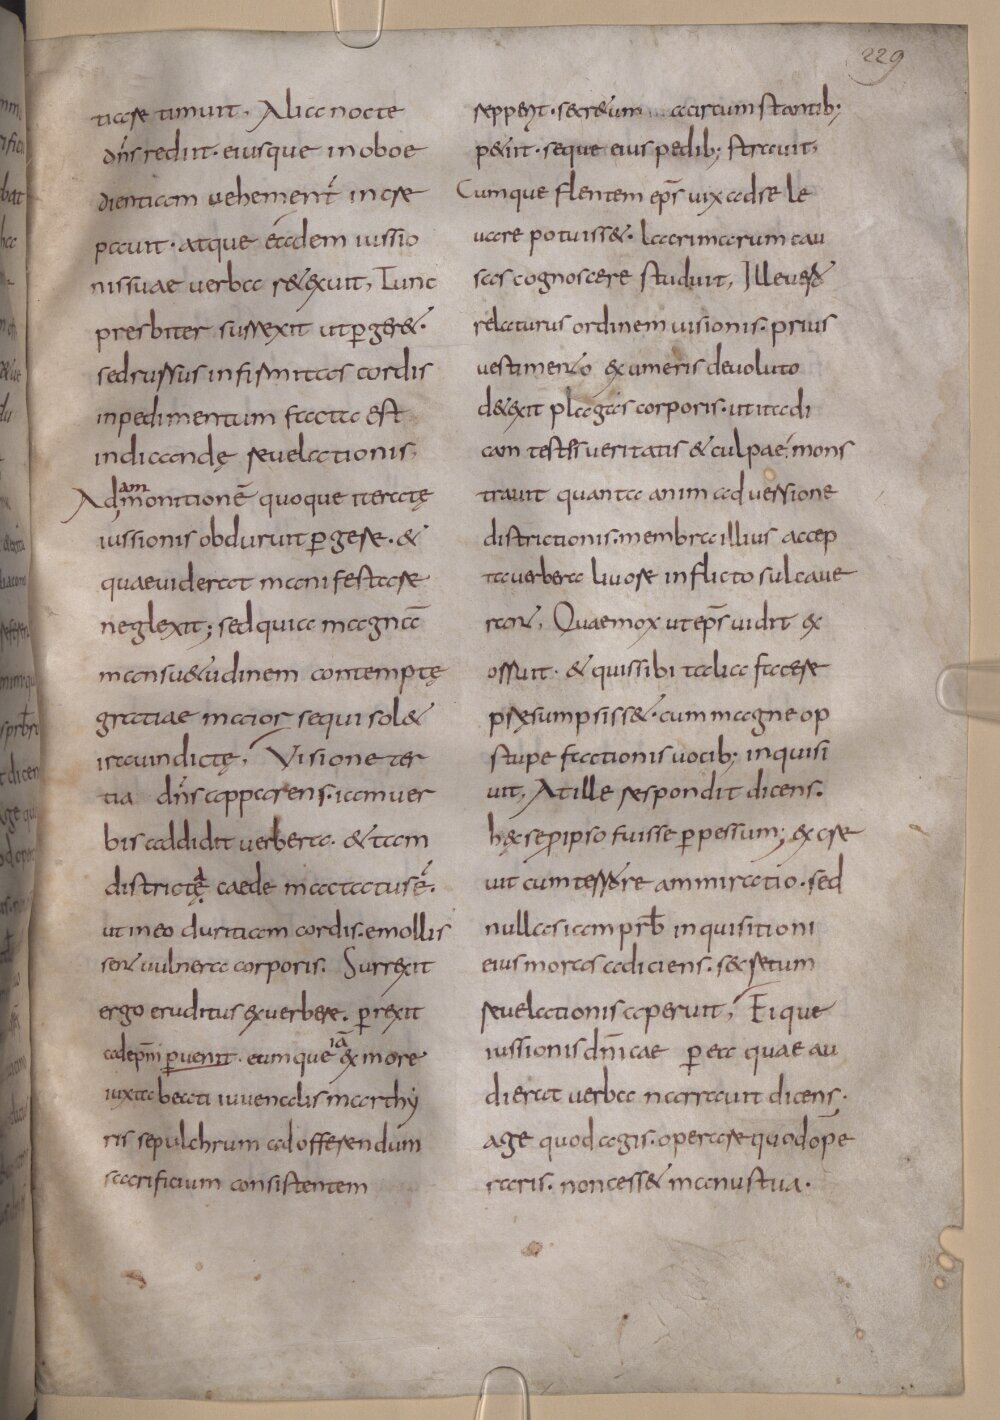 229
ticae timuit. Alia nocte
dn̄s rediit. eiusque inoboe
dientiam uehement̄ incre
pauit. atque eadem iussio
nis suae uerba r&exuit, Tunc
presbiter surrexit ut ꝑger&.
sed rursus infirmitas cordis
inpedimentum facta est
indicandę reuelationis.
Ad ammonitionē quoque iteratę
iussionis obduruit ꝑgere. &
quae uiderat manifestare
neglexit; sed quia magnā
mansu&udinem contemptę
gratiae maior sequi sol&
ira uindictę, Visione ter
tia dn̄s apparens. iam uer
bis addidit uerbera. & tam
districtę caede mactatus ē.
ut in eo duritiam cordis. emollis
sent uulnera corporis. Surrexit
ergo eruditus ex uerbere. ꝑrexit
ad ep̄m ꝑuenit. eumque iā ex more
iuxta beati iuuenalis marthy
ris sepulchrum ad offerendum
sacrificium consistentem
repperit. secr&um a circumstantib;
p&iit. seque eius pedib; strauit,
Cumque flentem ep̄s uix ad se le
uare potuiss&. lacrimarum cau
sas cognoscere studuit, Ille uero
relaturus ordinem uisionis. prius
uestimento ex umeris deuoluto
d&exit plagas corporis. ut ita di
cam testes ueritatis & culpae. mons
trauit quanta animaduersione
districtionis. membra illius accep
ta uerbera liuore inflicto sulcaue
rant, Quae mox ut ep̄s uidit ex
orruit. & quis sibi talia facere
presumpsiss&. cum magne op
stupefactionis uocib; inquisi
uit, At ille respondit dicens.
hęc se ꝓ ipso fuisse ꝑpessum; ex cre
uit cum terrore ammiratio. sed
nullas iam prb̄ inquisitioni
eius moras adiciens. secretum
reuelationis aperuit, Eique
iussionis dn̄icae ꝑ ea quae au
dierat uerba narrauit dicens.
age quod agis. operare quod ope
raris. non cess& manus tua.